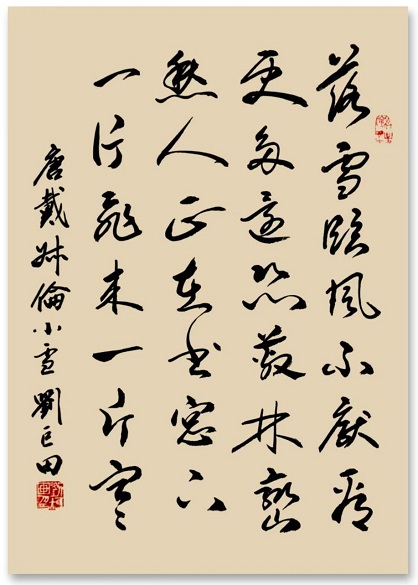 落雪臨風不厭看
更多還恐蔽林巒
愁人正在書窓下
一片飛來一片寒
唐戴叔倫小雪劉田